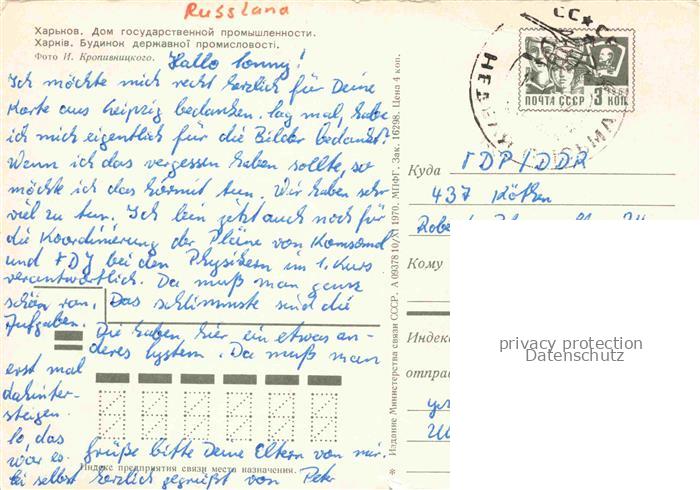 Russland
Харьков. Дом государственной промышленности.
Харків. Будинок державної промисловості.
Фото И. Кропивницкого.
Hallo Conny!
Ich möchte mich recht herzlich für Deine
Karte aus Leipzig bedanken. Sag mal, habe
ich mich eigentlich für die Bilder bedankt?
Wenn ich das vergessen haben sollte, so
möchte ich das hiermit tun. Wir haben sehr
viel zu tun. Ich bin jetzt auch noch für
die Koordinierung der Pläne von Komsomol
und FDJ bei den Physikern im 1. Kurs
verantwortlich. Da muß man ganz
schön ran. Das schlimmste sind die
Aufgaben. Die haben hier ein etwas an-
deres System. Da muß man
erst mal
dahinter-
steigen.
So, das
wär es. Grüße bitte Deine Eltern von mir.
Sei selbst herzlich gegrüßt von Peter
Индекс предприятия связи места назначения.
* Издание Министерства связи СССР. А 09378 10/XI 1970. МПФГ. Зак. 16298. Цена 4 коп.
СС★СС
ПОЧТА СССР 3 КОП.
Куда ГДР/DDR
437 Köthen
Кому
Индекс
отправ
ул
privacy protection
Datenschutz